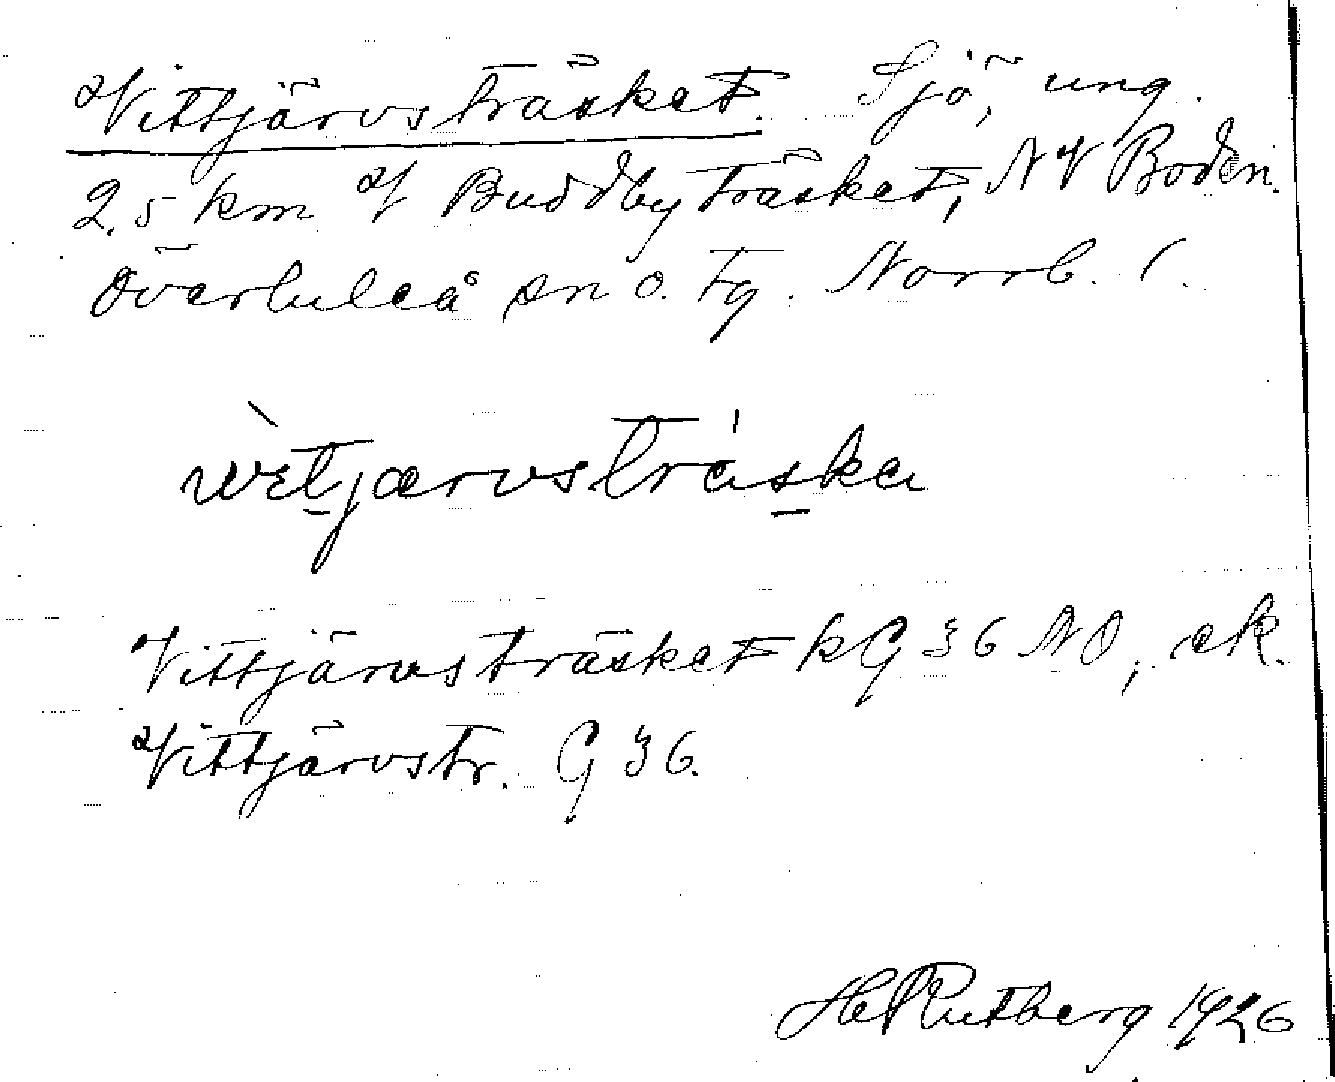 Vittjärvsträsket. Sjö, ung.
2,5 km V Buddbyträsket, NV Boden.
Överluleå sn o. tg. Norrb. l.
wètjærvstráska
Vittjärvsträsket kG 36 NO, ek.
Vittjärvstr. G 36.
Hel Rutberg 1926